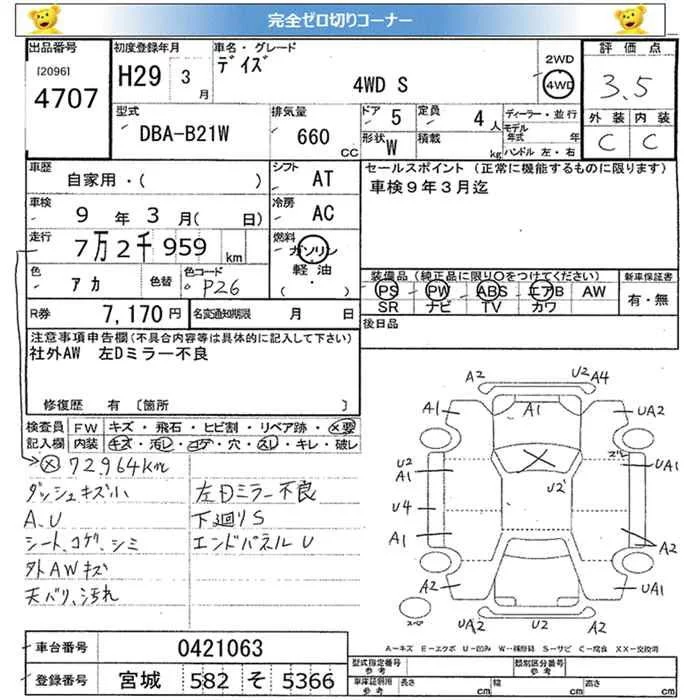 完全ゼロ切りコーナー
出品番号
[2096]
4707
初度登録年月
H29 3 月
車名・グレード
デイズ
4WD S
2WD
4WD
評価点
3.5
外装 内装
C C
型式
DBA-B21W
排気量
660 CC
ドア 5
形状 W
定員 4 人
積載 kg
ディーラー・並行
モデル年式 年
ハンドル 左・右
車歴
自家用・( )
シフト
AT
車検
9 年 3 月( 日)
冷房
AC
走行
7万2千959 km
燃料
ガソリン
軽油
( ・ )
色
アカ
色替
色コード
P26
R券
7,170円
名変通知期限 月 日
セールスポイント (正常に機能するものに限ります)
車検9年3月迄
装備品(純正品に限り○をつけてください)
PS PW ABS エアB AW
SR ナビ TV カワ
新車保証書
有・無
後日品
注意事項申告欄(不具合内容等は具体的に記入して下さい)
社外AW 左Dミラー不良
修復歴 有 〔箇所 〕
検査員記入欄
FW キズ・飛石・ヒビ割・リペア跡・×要
内装 キズ・汚レ・コゲ・穴・スレ・キレ・破レ
× 72,964km
ダッシュキズ小
A、U
シート、コゲ、シミ
外AWキズ
天バリ、汚れ
左Dミラー不良
下廻りS
エンドパネルU
A2 U2 A4
A1 A1 UA2
U2 A1 U2 ズレ UA1
U4
A1 A2
A2 UA1
UA2 U2 UA2
スペア
A-キズ E-エクボ U-凹み W-補修跡 S-サビ C-腐食 XX-交換済
車台番号
0421063
登録番号
宮城 582 そ 5366
型式指定番号
参考
類別区分番号
参考
車庫証明用
参考
長さ cm
幅 cm
高さ cm